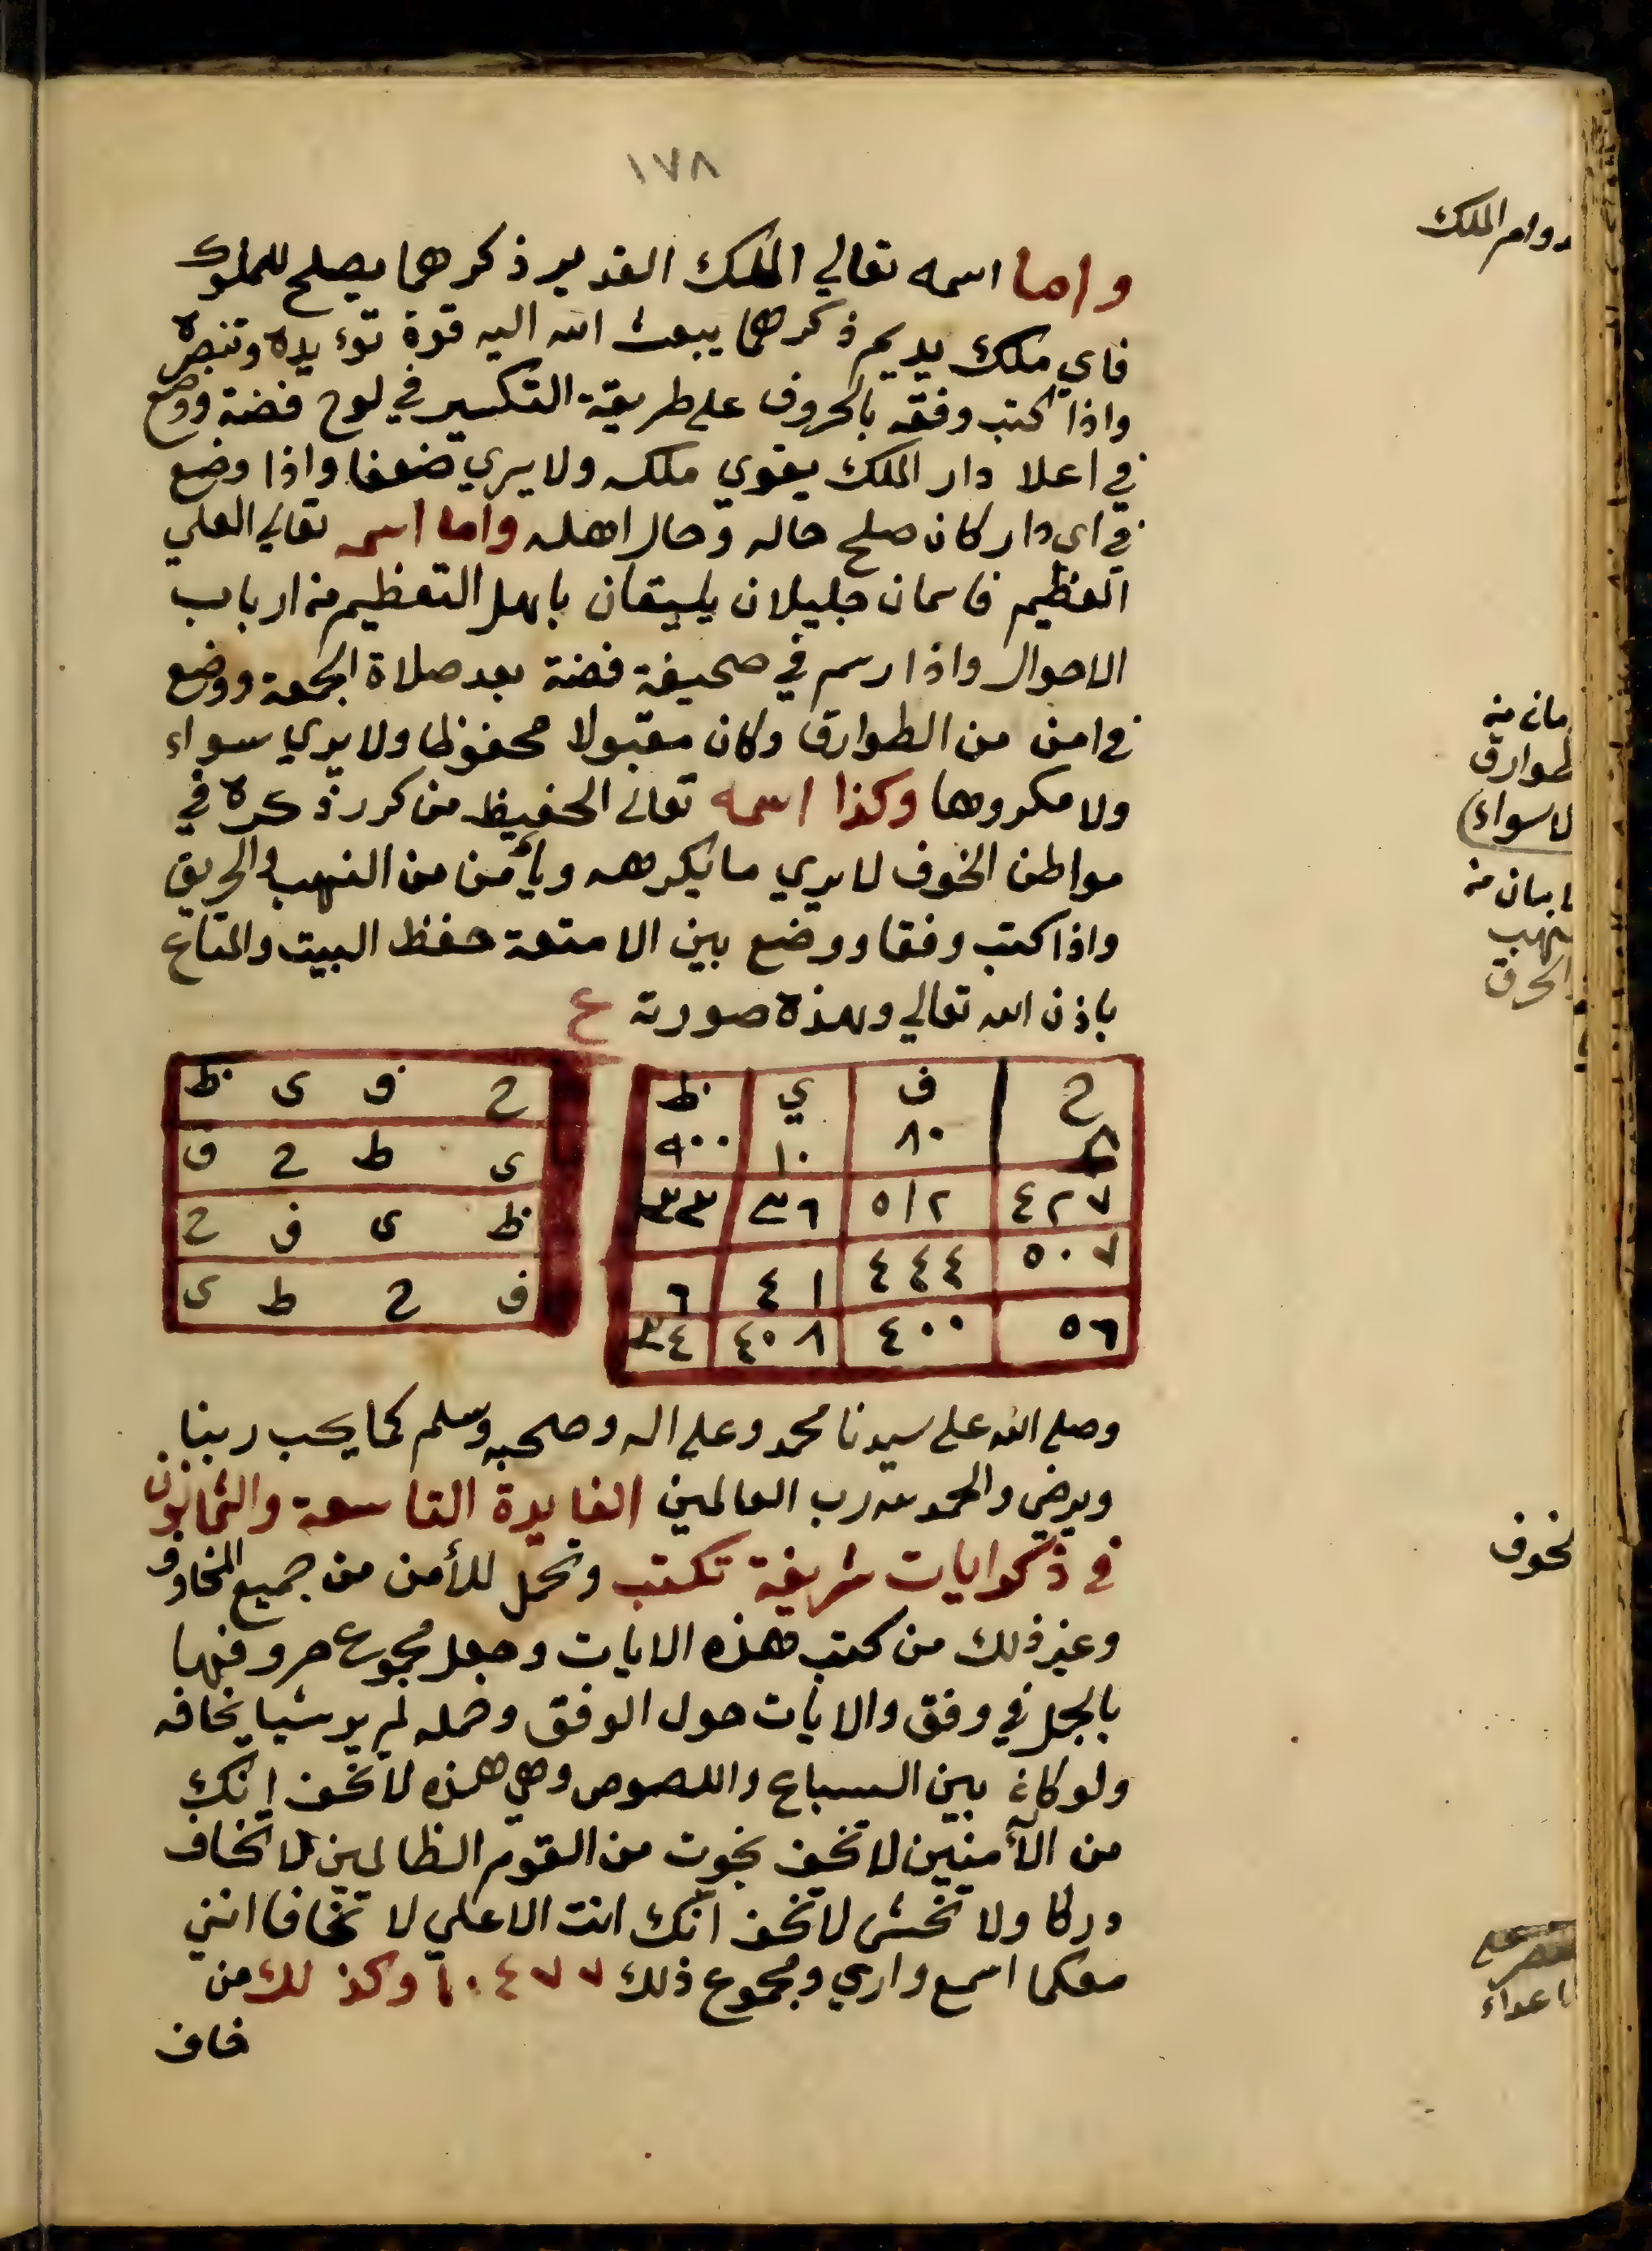 ١٧٨
دوام الملك
واما اسمه تعالي الملك القدير ذكرهما يصلح للملوك
فاي ملك يديم ذكرهما يبعث الله اليه قوة تؤيده وتنصره
واذا كتب وفقه بالحروف على طريقة التكسير في لوح فضة ووضع
في اعلا دار الملك يقوي ملكه ولا يري ضعفا واذا وضع
في اي دار كان صلح حاله وحال اهله واما اسمه تعالي العلي
العظيم فاسمان جليلان يليقان باهل التعظيم من ارباب
الاحوال واذا رسم في صحيفة فضة بعد صلاة الجمعة ووضع
في امن من الطوارق وكان مقبولا محفوظا ولا يري سواء
ولا مكروها وكذا اسمه تعالى الحفيظ من كرر ذكره في
مواطن الخوف لا يري ما يكرهه ويأمن من النهب والحريق
واذا كتب وفقا ووضع بين الامتعة حفظ البيت والمتاع
باذن الله تعالي وهذه صورته ع
مان من
طوارق
لاسواء
امان من
نهب
الحرق
ح ف ي ظ
٨ ٨٠ ١٠ ٩٠٠
٤٢٧ ٥١٢ ٣٦ ٢٣
٥٠٧ ٤٤٤ ٤١ ٦
٥٦ ٤٠٠ ٤٠٨ ٣٤
ح ف ى ظ
ى ط ح ف
ظ ى ف ح
ف ح ط ى
وصلى الله على سيدنا محمد وعلى اله وصحبه وسلم كما يحب ربنا
ويرضى والحمد لله رب العالمين الفايدة التاسعة والثمانون
في ذكر ايات شريفة تكتب وتحمل للأمن من جميع المخاوف
وغير ذلك من كتب هذه الايات وجعل مجموع حروفها
بالجمل في وفق والايات حول الوفق وحمله لم ير شيا يخافه
ولو كان بين السباع واللصوص وهي هذه لا تخف انك
من الآمنين لا تخف نجوت من القوم الظالمين لا تخاف
دركا ولا تخشى لا تخف انك انت الاعلي لا تخافا انني
معكما اسمع واري ومجموع ذلك ١٠٤٧٧ وكذلك من
خاف
لخوف
اعداء